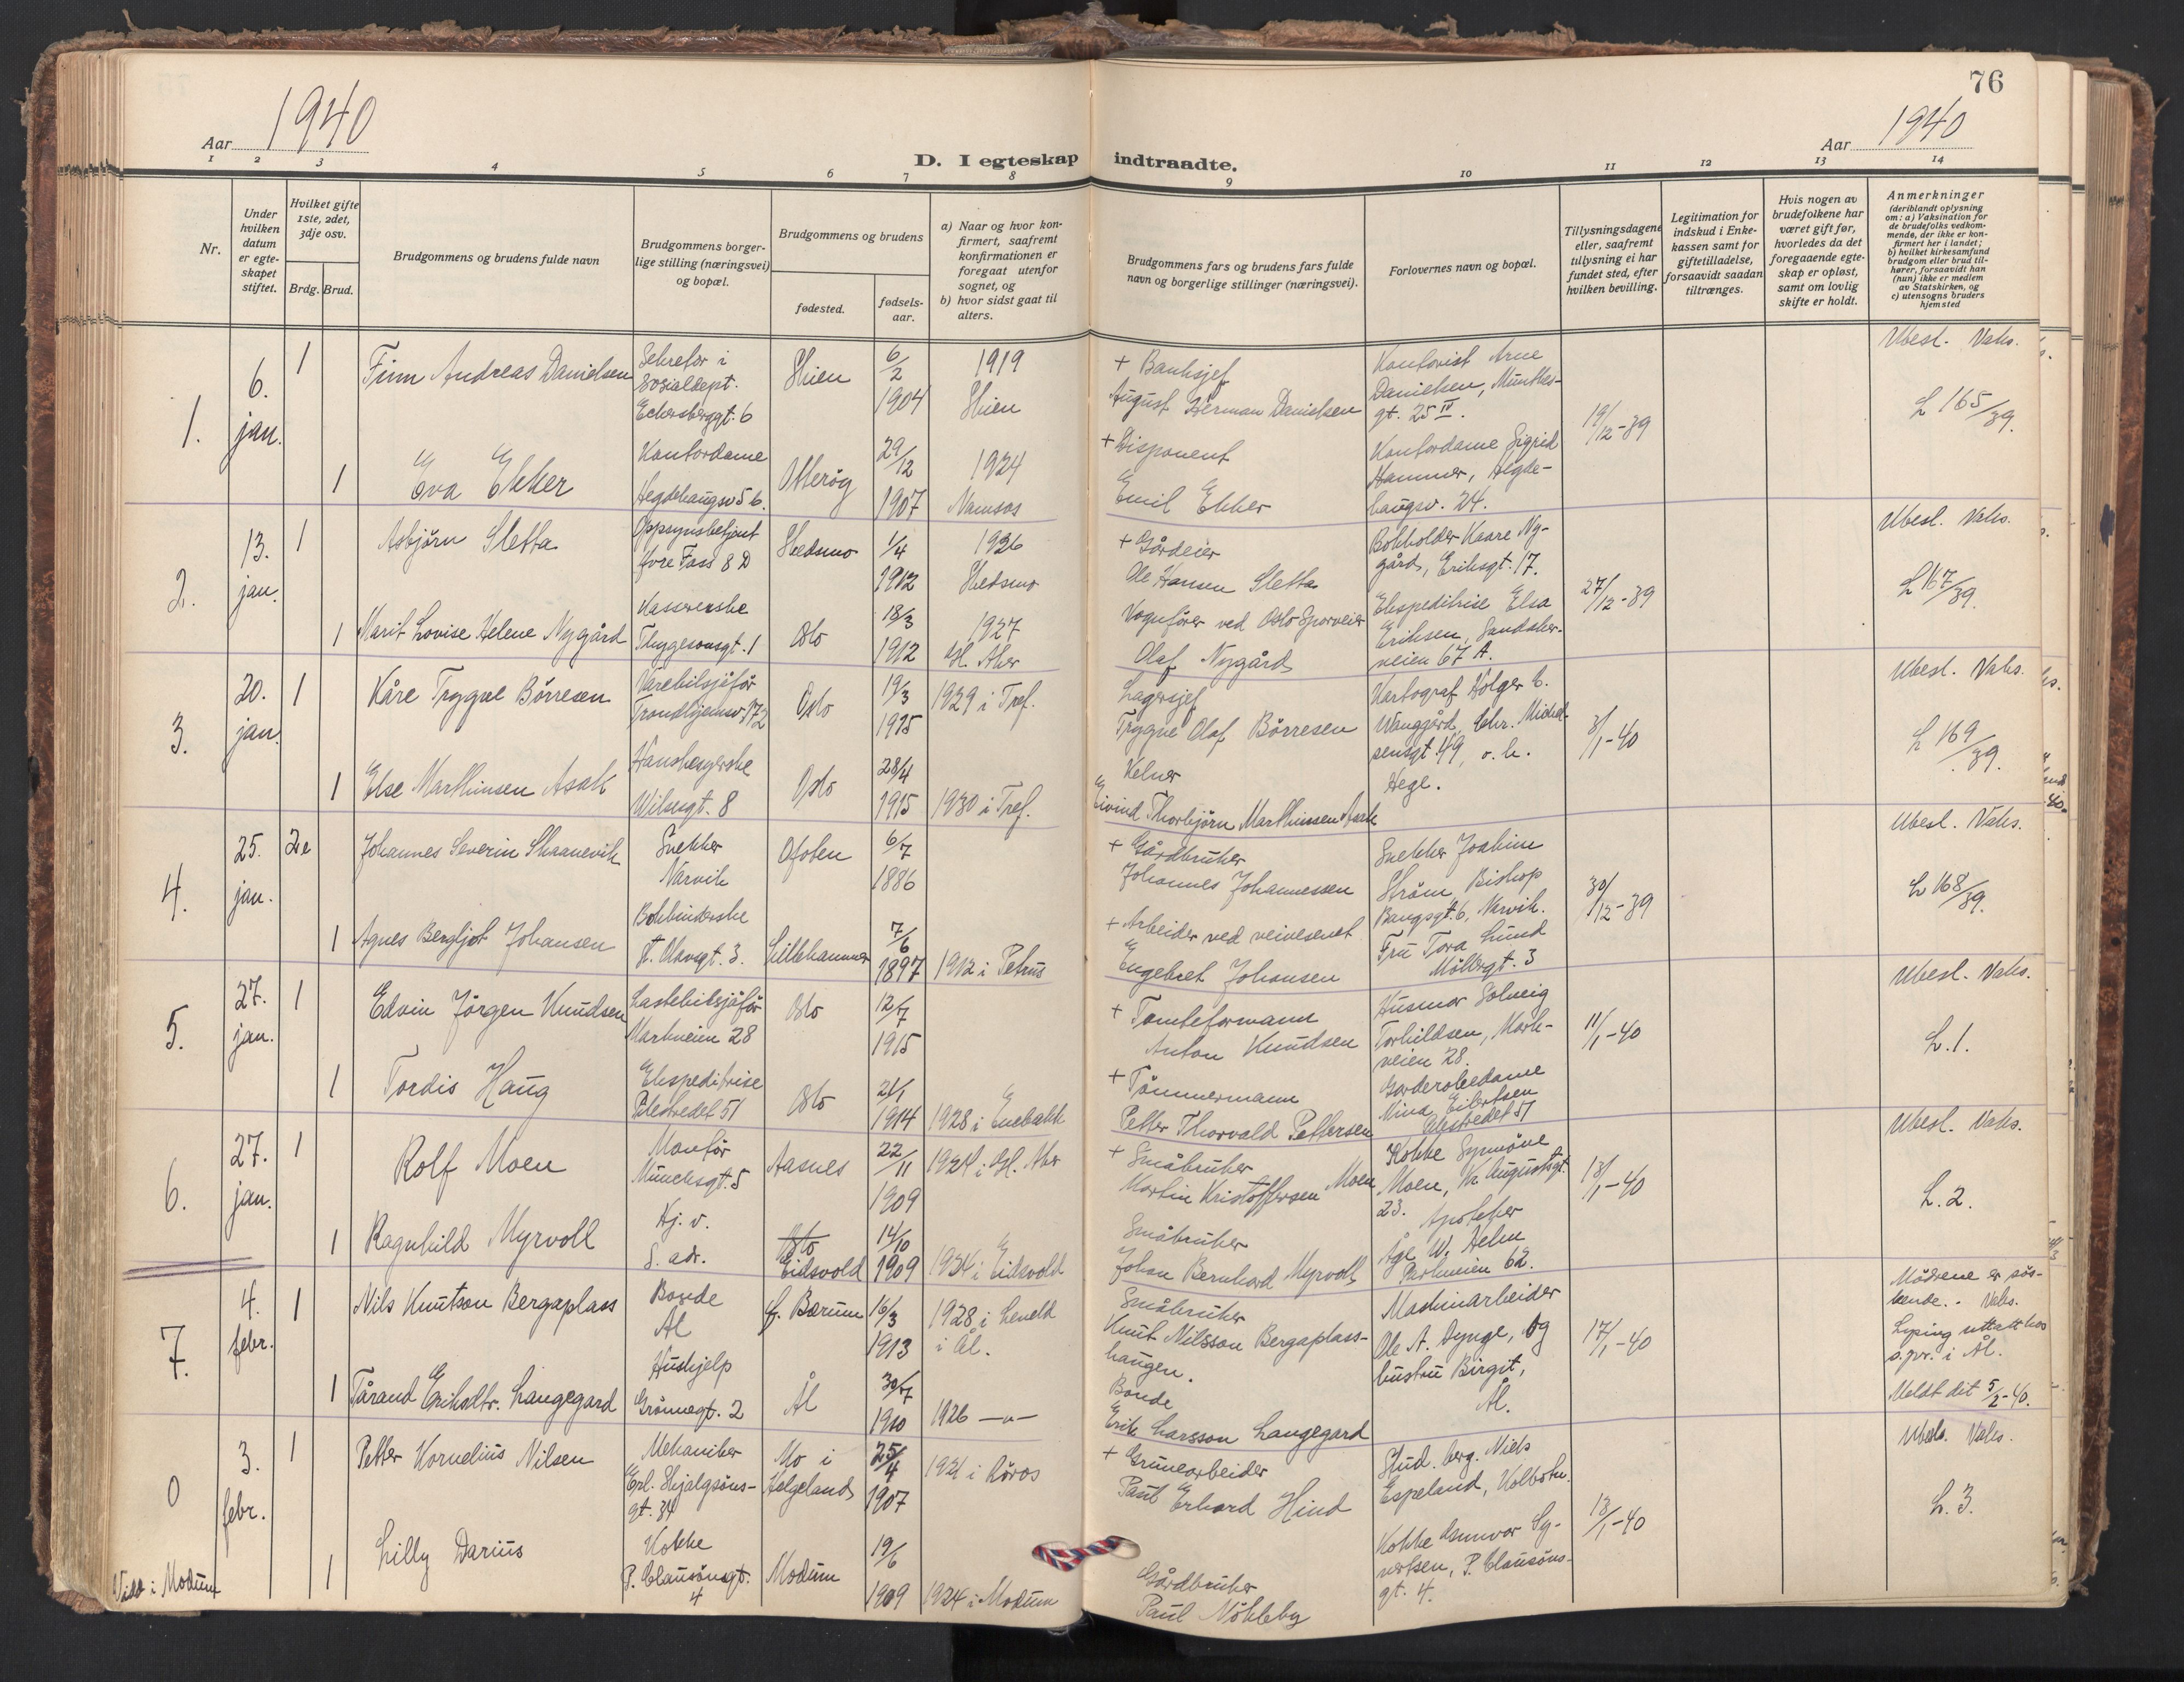 76
Aar 1940
Aar 1940
D. I egteskap indtraadte.
1 2 3 4 5 6 7 8 9 10 11 12 13 14
Nr.
Under hvilken datum er egteskapet stiftet.
Hvilket gifte 1ste, 2det, 3dje osv.
Brdg. Brud.
Brudgommens og brudens fulde navn
Brudgommens borgerlige stilling (næringsvei) og bopæl.
Brudgommens og brudens
fødested.
fødselsaar.
a) Naar og hvor konfirmert, saafremt konfirmationen er foregaat utenfor sognet, og
b) hvor sidst gaat til alters.
Brudgommens fars og brudens fars fulde navn og borgerlige stillinger (næringsvei).
Forlovernes navn og bopæl.
Tillysningsdagene eller, saafremt tillysning ei har fundet sted, efter hvilken bevilling.
Legitimation for indskud i Enkekassen samt for giftetilladelse, forsaavidt saadan tiltrænges.
Hvis nogen av brudefolkene har været gift før, hvorledes da det foregaaende egteskap er opløst, samt om lovlig skifte er holdt.
Anmerkninger
(deriblandt oplysning om: a) Vaksination for de brudefolks vedkommende, der ikke er konfirmert her i landet; b) hvilket kirkesamfund brudgom eller brud tilhører, forsaavidt han (hun) ikke er medlem av Statskirken, og c) utensogns bruders hjemsted
1.
6. jan.
1
Finn Andreas Danielsen
Sekretær i Sosialdept. Eckersberggt. 6
Skien
6/2 1904
1919 Skien
+ Banksjef
August Herman Danielsen
Kontorist Arne Danielsen, Munthesgt. 25 IV.
19/12-39
Ubesl. Vaks.
L 165/39.
1
Eva Ekker
Kontordame Hegdehaugsv 56.
Otterøy
29/12 1907
1924 Namsos
+ Disponent
Emil Ekker
Kontordame Sigrid Hammer, Hegdehaugsv. 24.
2.
13. jan.
1
Asbjörn Sletta
Oppsynsbetjent Øvre Foss 8 D
Skedsmo
1/4 1912
1926 Skedsmo
+ Gårdeier
Ole Hansen Sletta
Bokholder Kaare Nygård, Eriksgt. 17.
27/12-39
Ubesl. Vaks.
L 167/39.
1
Marit Lovise Helene Nygård
Kassererske Thygesonsgt. 1
Oslo
18/3 1912
1927 Gl. Aker
Vognfører ved Oslo Sporveier
Olaf Nygård
Ekspeditrise Elsa Eriksen, Sandakerveien 67 A.
3.
20. jan.
1
Kåre Trygve Börresen
Varebilsjåför Trondhjemsv 172
Oslo
19/3 1915
1929 i Tref.
Lagersjef
Trygve Olaf Börresen
Kartograf Holger C. Wanggård, Chr. Michelsensgt 49, o. h. Hege.
3/1-40
Ubesl. Vaks.
L 169/39.
1
Else Marthinsen Asak
Hanskesyerske Wilsesgt. 8
Oslo
28/4 1915
1930 i Tref.
Kelner
Eivind Thorbjörn Marthinsen Asak
4.
25. jan.
2e
Johannes Severin Skaanevik
Snekker Narvik
Ofoten
6/7 1886
+ Gårdbruker
Johannes Johannessen
Snekker Joakim Ström, Biskop Bangsgt. 6, Narvik.
30/12-39
Ubesl. Vaks.
L 168/39.
1
Agnes Bergljot Johansen
Bokbinderske St. Olavsgt. 3.
Lillehammer
7/6 1897
1912 i Petrus
+ Arbeider ved veivesenet
Engebret Johansen
Fru Tora Lund Möllergt. 3
5.
27. jan.
1
Edvin Jörgen Knudsen
Lastebilsjåför Markveien 28
Oslo
12/7 1915
+ Tomteformann
Anton Knudsen
Husmor Solveig Torhildsen, Markveien 28.
11/1-40
Ubesl. Vaks.
L. 1.
1
Tordis Haug
Ekspeditrise Pilestredet 51
Oslo
21/1 1914
1928 i Enebakk
+ Tömmermann
Petter Thorvald Pettersen
Garderobedame Nina Eilertsen Pilestredet 51
6.
27. jan.
1
Rolf Moen
Montör Munchsgt. 5
Aasnes
22/11 1909
1924 i Gl. Aker
+ Småbruker
Martin Kristoffersen Moen
Kokke Synnöve Moen, Kr. Augustsgt. 23.
13/1-40
Ubesl. Vaks.
L. 2.
1
Ragnhild Myrvoll
Kj. v. S. adr.
Oslo Eidsvold
14/10 1909
1924 i Eidsvold
Småbruker
Johan Bernhard Myrvoll
Apoteker Åge W. Helm Parkveien 62.
7.
4. febr.
1
Nils Knutson Bergaplass
Bonde Ål
f. Bærum
16/3 1913
1928 i Leveld i Ål.
Småbruker
Knut Nilsson Bergaplasshaugen.
Maskinarbeider Ole A. Dynge, og hustru Birgit, Ål.
17/1-40
Mödrene er söskende. - Vaks.
Lysing uttatt hos s.pr. i Ål.
Meldt dit 5/2-40.
1
Tårand Eriksdtr. Langegard
Hushjelp Grönnegt. 2
Ål
30/7 1910
1926 -"-
Bonde
Erik Larsson Langegard
0
Viet i Modum
3. febr.
1
Petter Kornelius Nilsen
Mekaniker Erl. Skjalgsönsgt. 34
Mo i Helgeland
25/4 1907
1921 i Röros
+ Gruvearbeider
Paul Erhard Hind
Stud. berg. Niels Espeland, Kolbotn.
13/1-40
Ubesl. Vaks.
L. 3.
1
Lilly Darius
Kokke P. Clausönsgt. 4
Modum
19/6 1909
1924 i Modum
Gårdbruker
Paul Nökleby
Kokke Gunvor Syvertsen, P. Clausönsgt. 4.